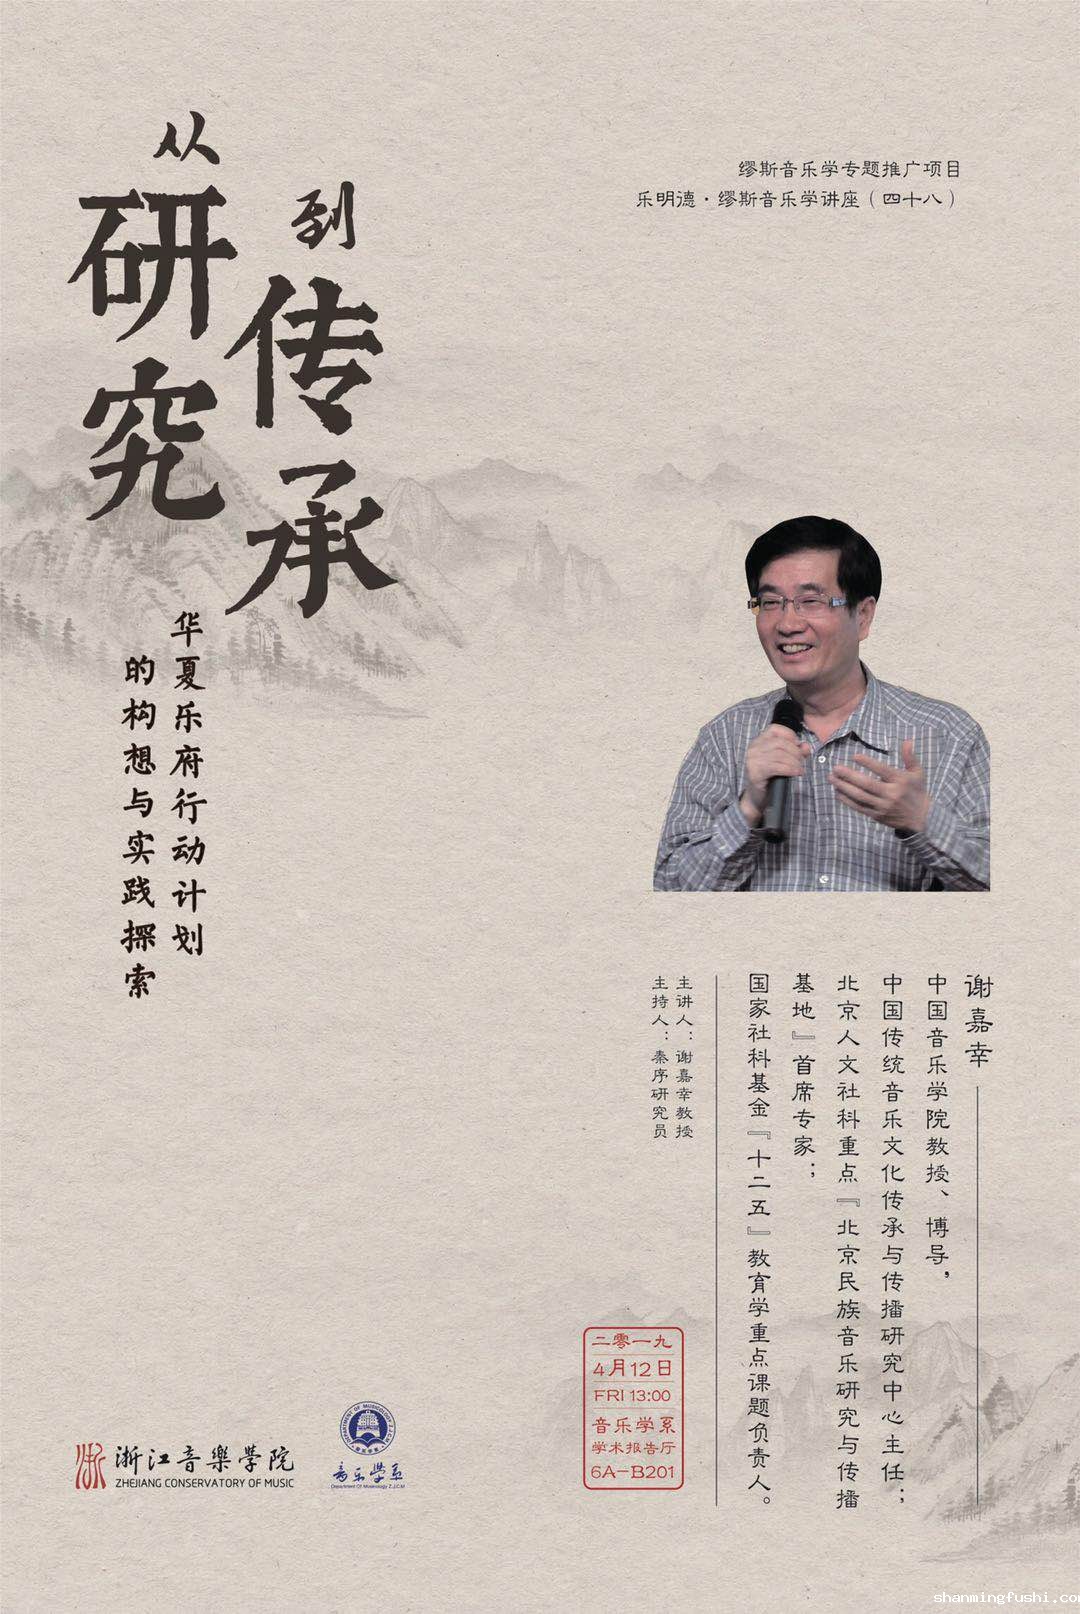 从研究
到传承
华夏乐府行动计划
的构想与实践探索
缪斯音乐学专题推广项目
乐明德·缪斯音乐学讲座（四十八）
谢嘉幸
中国音乐学院教授、博导，
中国传统音乐文化传承与传播研究中心主任；
北京人文社科重点『北京民族音乐研究与传播
基地』首席专家；
国家社科基金『十二五』教育学重点课题负责人。
主讲人：谢嘉幸教授
主持人：秦序研究员
二零一九
4月12日
FRI 13:00
音乐学系
学术报告厅
6A-B201
浙江音樂學院
ZHEJIANG CONSERVATORY OF MUSIC
DEPARTMENT OF MUSICOLOGY Z.J.C.M
音乐学系
Department Of Musicology Z.J.C.M
shanmingfushi.com